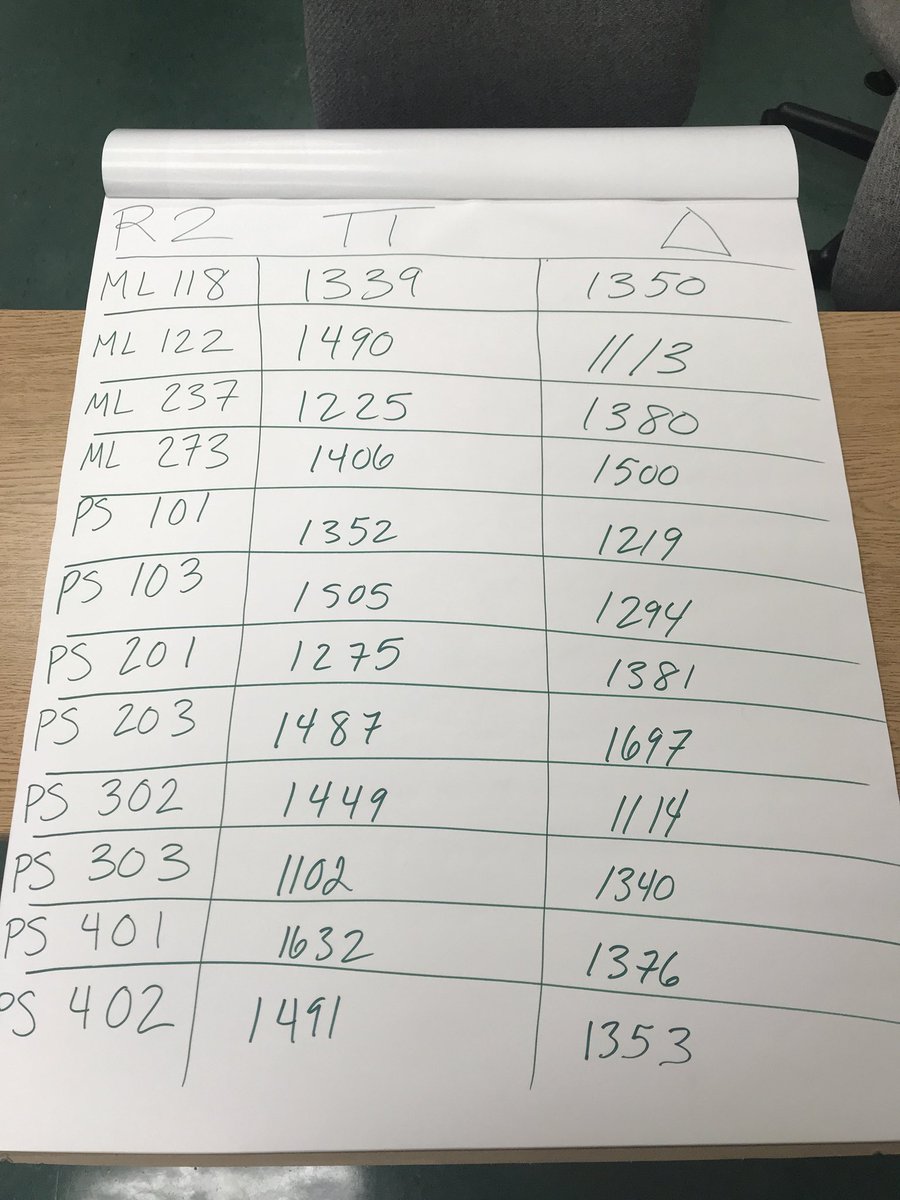 R2 π Δ
ML 118 1339 1350
ML 122 1490 1113
ML 237 1225 1380
ML 273 1406 1500
PS 101 1352 1219
PS 103 1505 1294
PS 201 1275 1381
PS 203 1487 1697
PS 302 1449 1114
PS 303 1102 1340
PS 401 1632 1376
PS 402 1491 1353